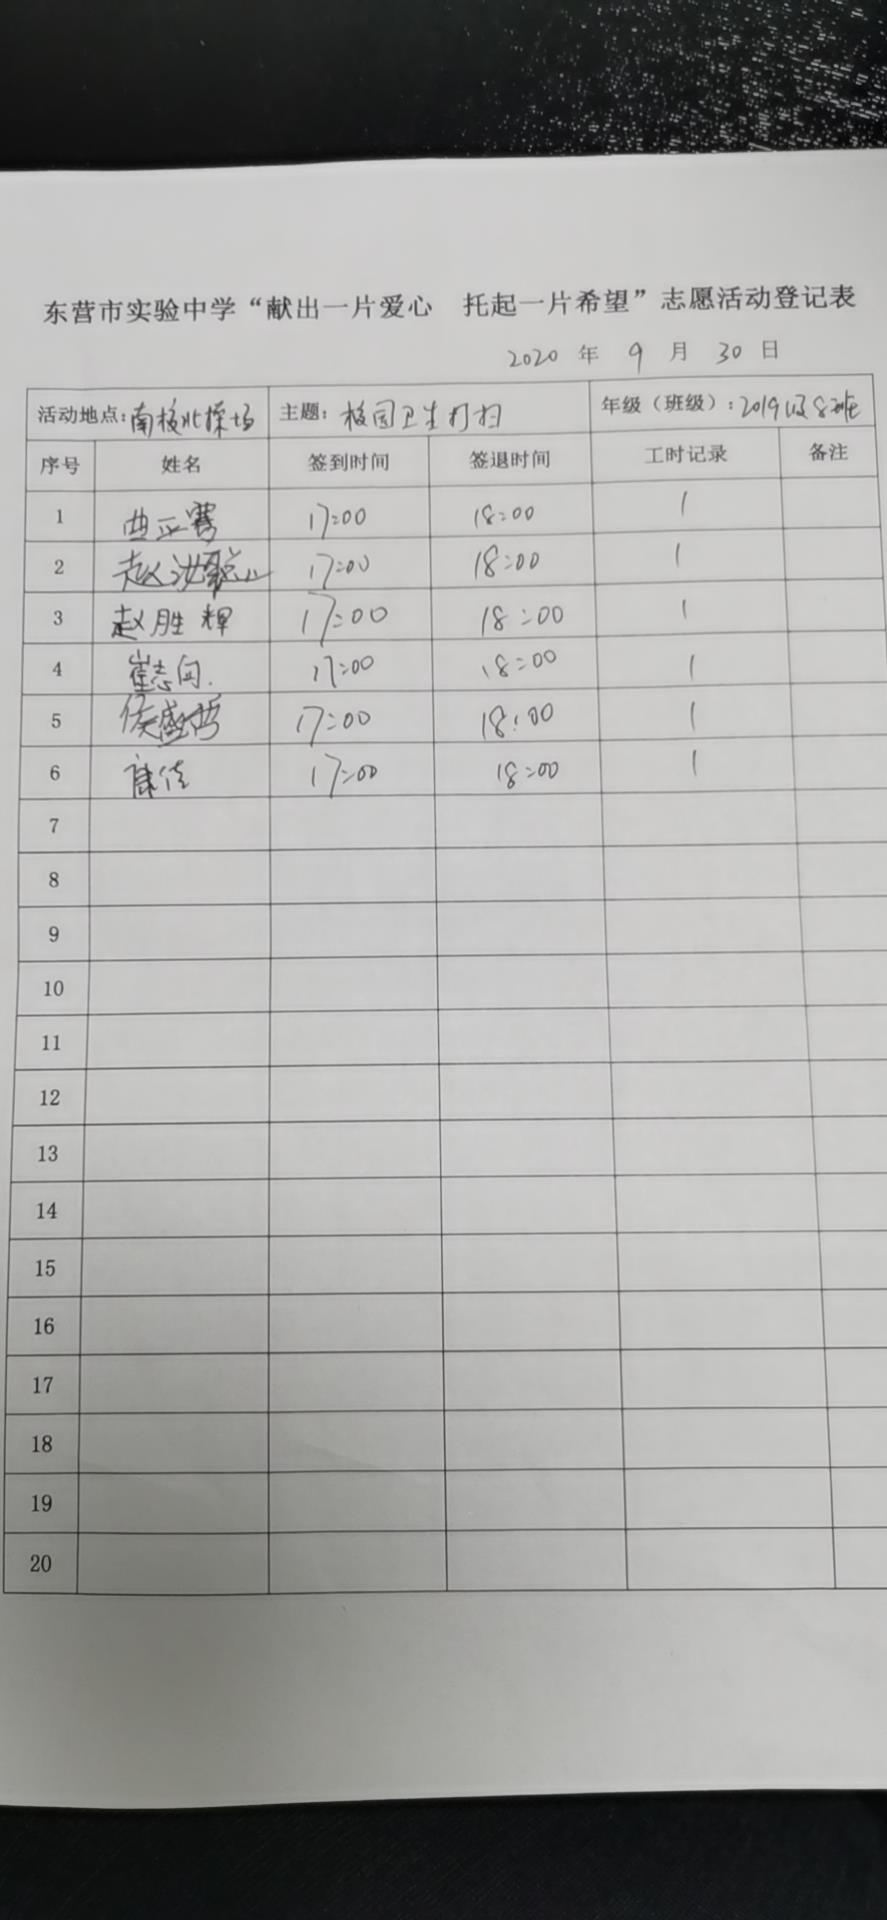 东营市实验中学“献出一片爱心 托起一片希望”志愿活动登记表
2020 年 9 月 30 日
活动地点:南校北操场 主题:校园卫生打扫 年级（班级）:2019级8班
序号 姓名 签到时间 签退时间 工时记录 备注
1 曲正骞 17:00 18:00 1
2 赵 17:00 18:00 1
3 赵胜辉 17:00 18:00 1
4 崔志闯. 17:00 18:00 1
5 侯盛哲 17:00 18:00 1
6 康佳 17:00 18:00 1
7
8
9
10
11
12
13
14
15
16
17
18
19
20